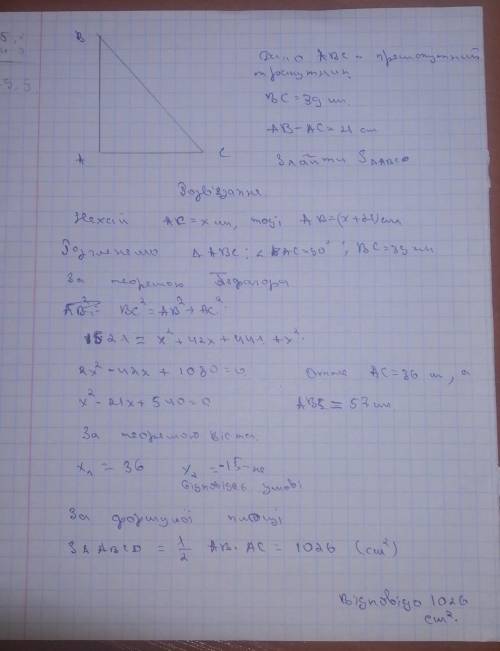 B
A
C
ABC - прямокутний
трикутник
BC = 39 см
AB - AC = 21 см
Знайти S
Розв'язання.
Нехай AC = x см, тоді AB = (x+21) см
Розглянемо Δ ABC: ∠ BAC = 90°; BC = 39 см
За теоремою Піфагора
BC² = AB² + AC²
1521 = x² + 42x + 441 + x²
2x² - 42x + 1080 = 0 Отже AC = 36 см, а
x² - 21x + 540 = 0 AB = 57 см
За теоремою Вієта
x₁ = 36 x₂ = -15 - не
відповідає умові
За формулою площі
= 1/2 AB · AC = 1026 (см²)
1026
см².